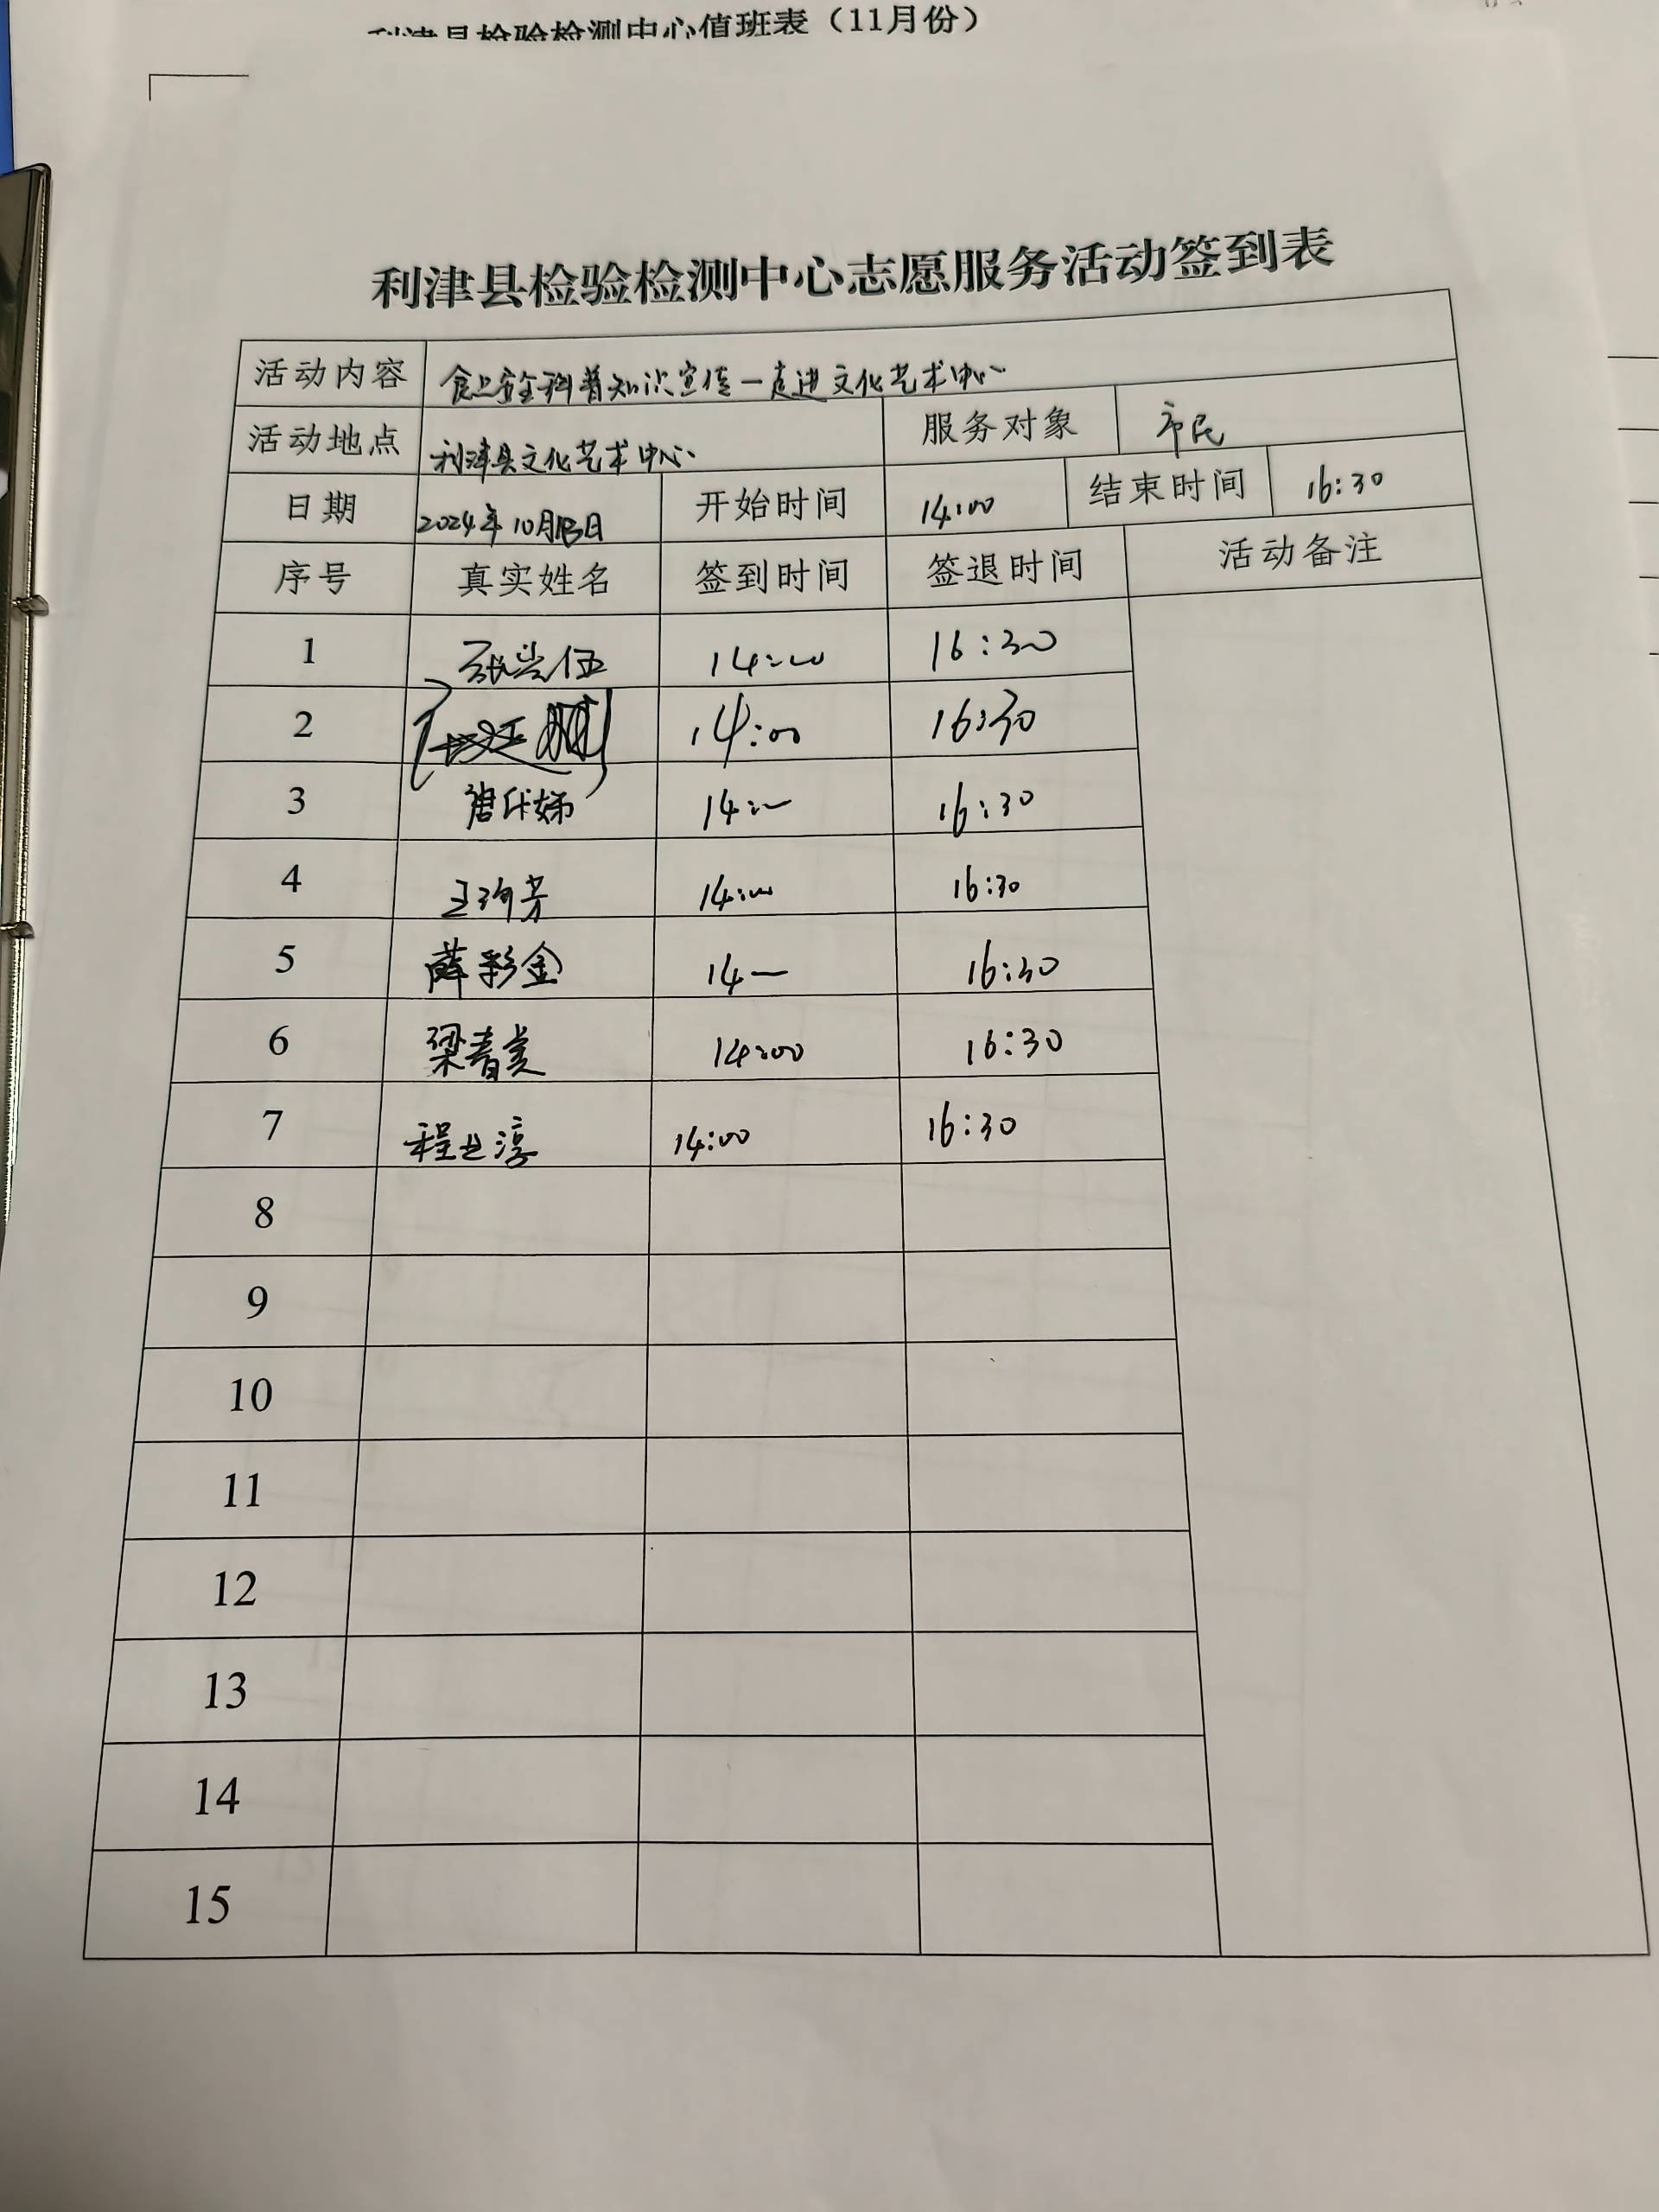 利津县检验检测中心值班表（11月份）
利津县检验检测中心志愿服务活动签到表
活动内容 食品安全科普知识宣传—走进文化艺术中心
活动地点 利津县文化艺术中心 服务对象 市民
日期 2024年10月18日 开始时间 14:00 结束时间 16:30
序号 真实姓名 签到时间 签退时间 活动备注
1 14:00 16:30
2 14:00 16:30
3 14:00 16:30
4 14:00 16:30
5 薛彩金 14:00 16:30
6 14:00 16:30
7 14:00 16:30
8
9
10
11
12
13
14
15